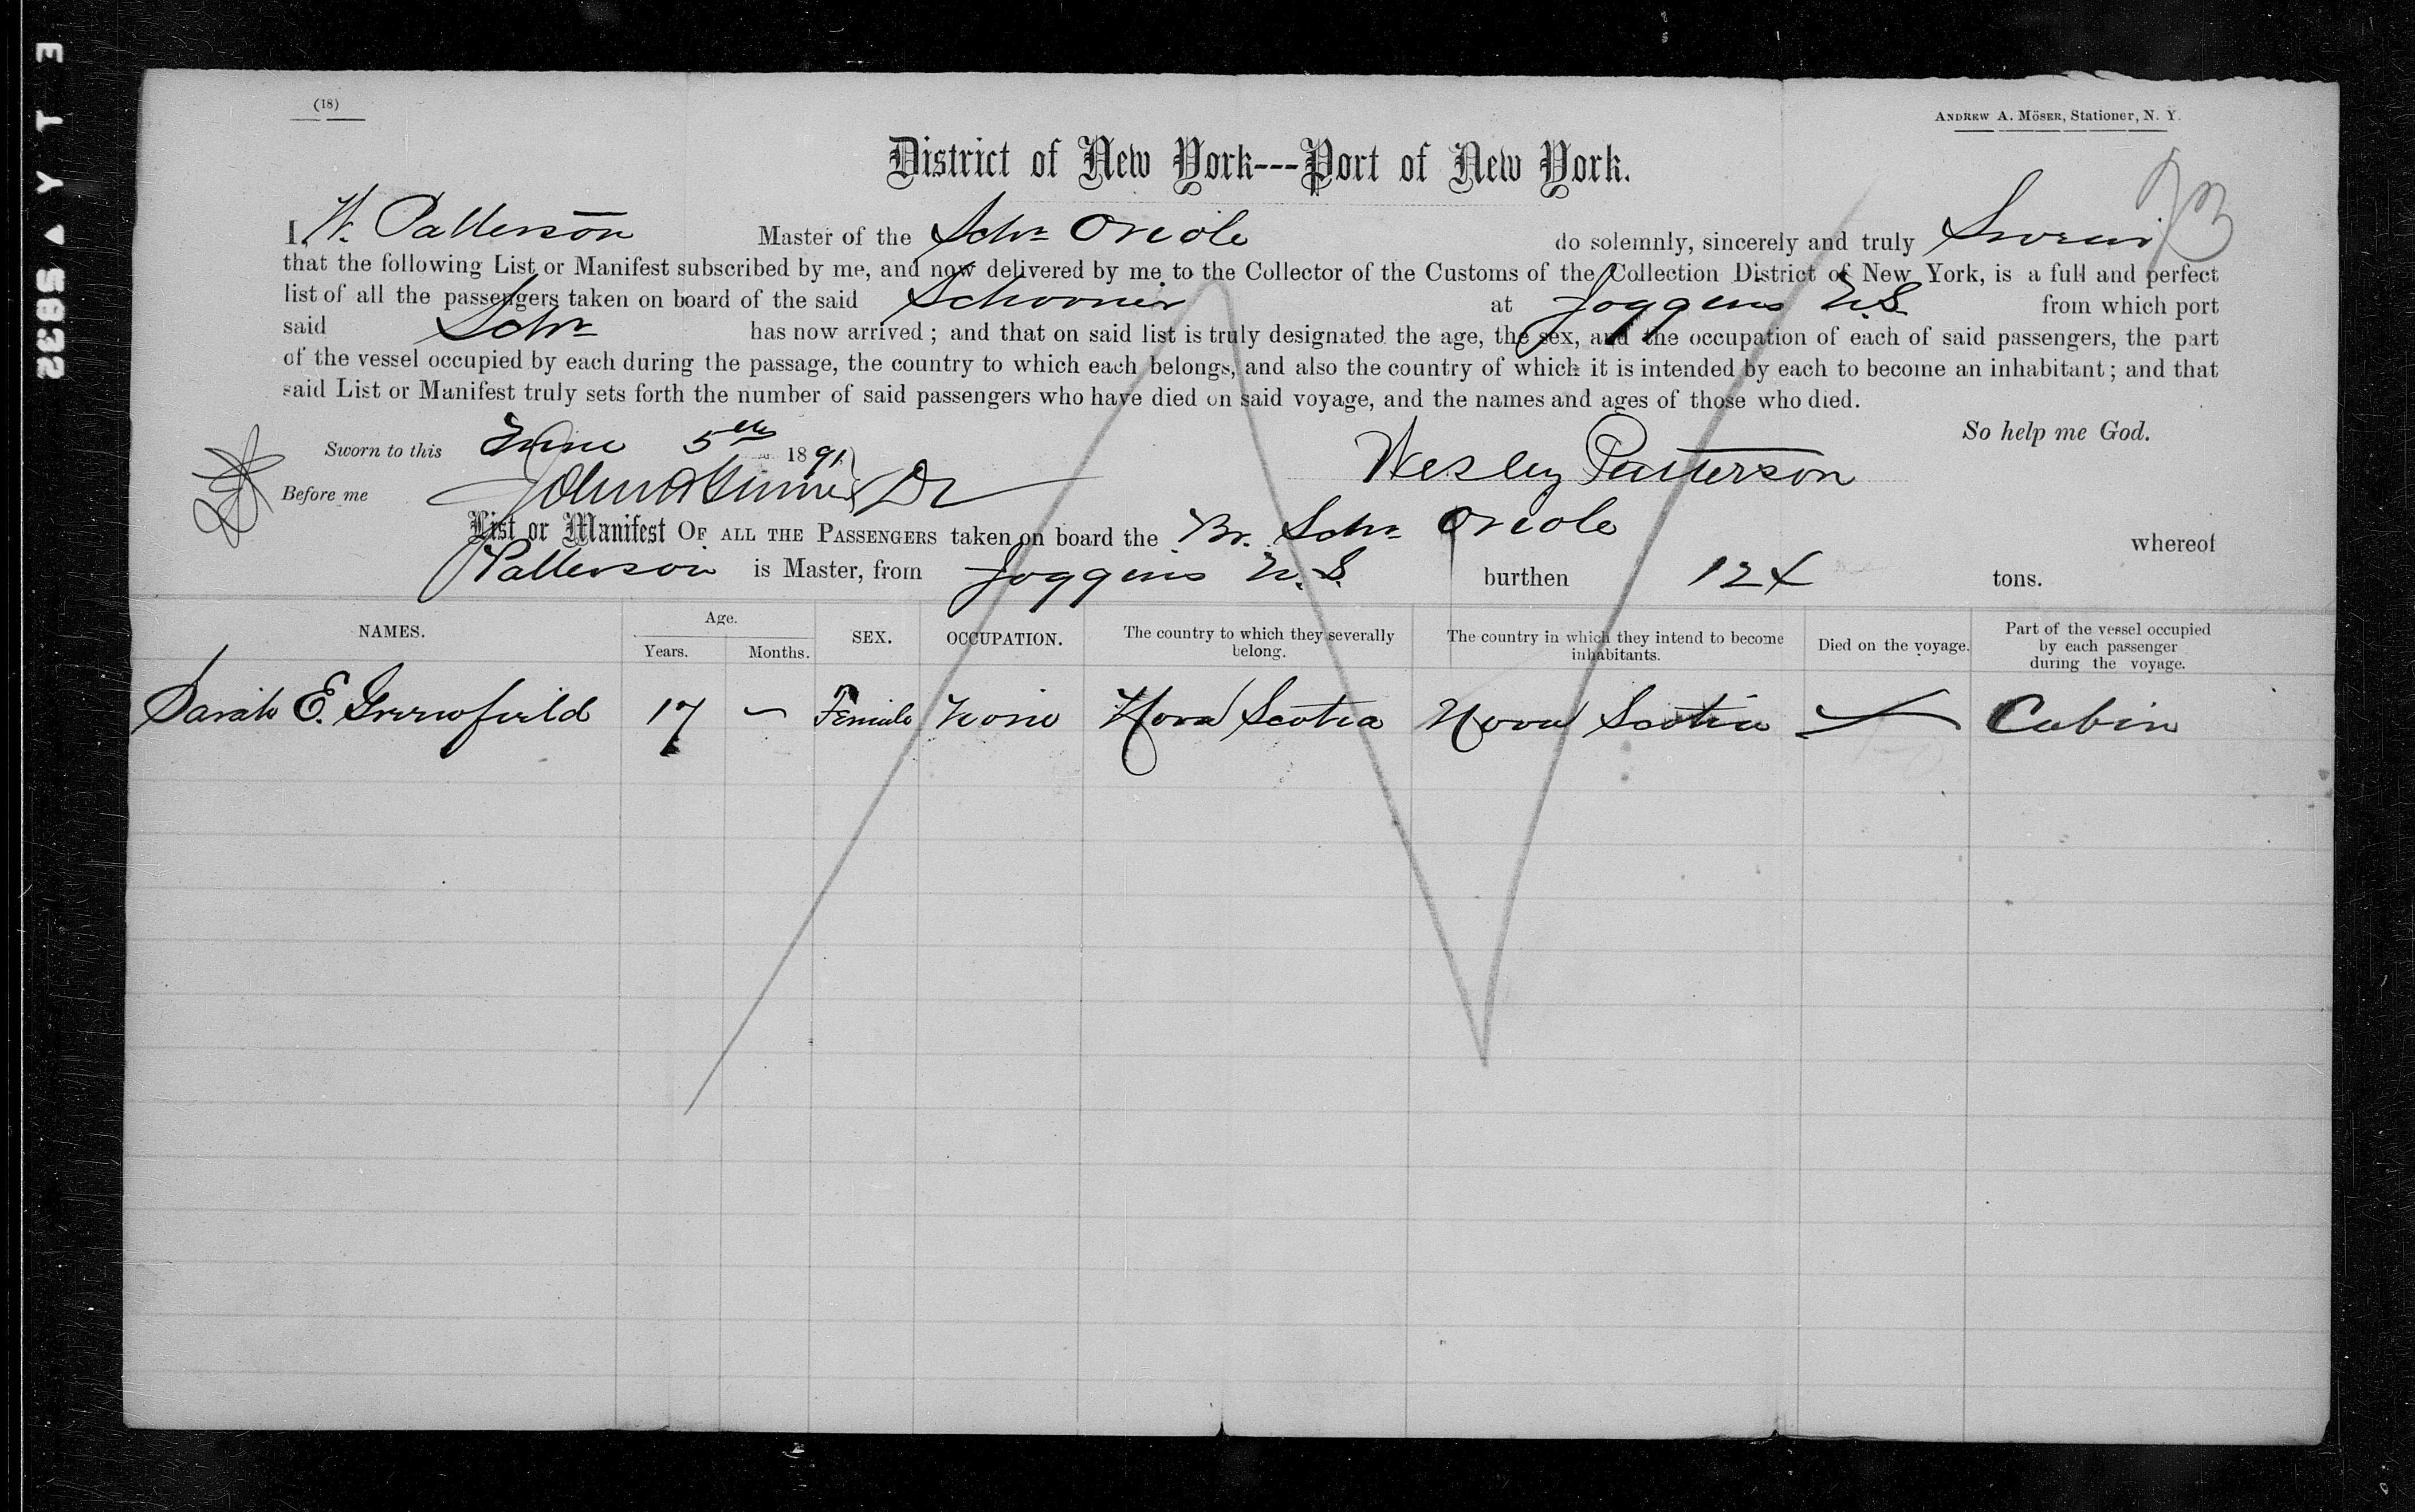 SAFETY
(18)
ANDREW A. MÖSER, Stationer, N. Y.
District of New York---Port of New York.
73
I, W. Patterson Master of the Schr Oriole do solemnly, sincerely and truly Swear
that the following List or Manifest subscribed by me, and now delivered by me to the Collector of the Customs of the Collection District of New York, is a full and perfect
list of all the passengers taken on board of the said Schooner at Joggins N.S. from which port
said Schr has now arrived; and that on said list is truly designated the age, the sex, and the occupation of each of said passengers, the part
of the vessel occupied by each during the passage, the country to which each belongs, and also the country of which it is intended by each to become an inhabitant; and that
said List or Manifest truly sets forth the number of said passengers who have died on said voyage, and the names and ages of those who died.
So help me God.
Sworn to this June 5th 1891
Wesley Patterson
Before me
List or Manifest OF ALL THE PASSENGERS taken on board the Br. Schr Oriole whereof
Patterson is Master, from Joggins N.S. burthen 124 tons.
NAMES. Age. Years. Months. SEX. OCCUPATION. The country to which they severally belong. The country in which they intend to become inhabitants. Died on the voyage. Part of the vessel occupied by each passenger during the voyage.
Sarah E. Greenfield 17 - Female None Nova Scotia Nova Scotia - Cabin